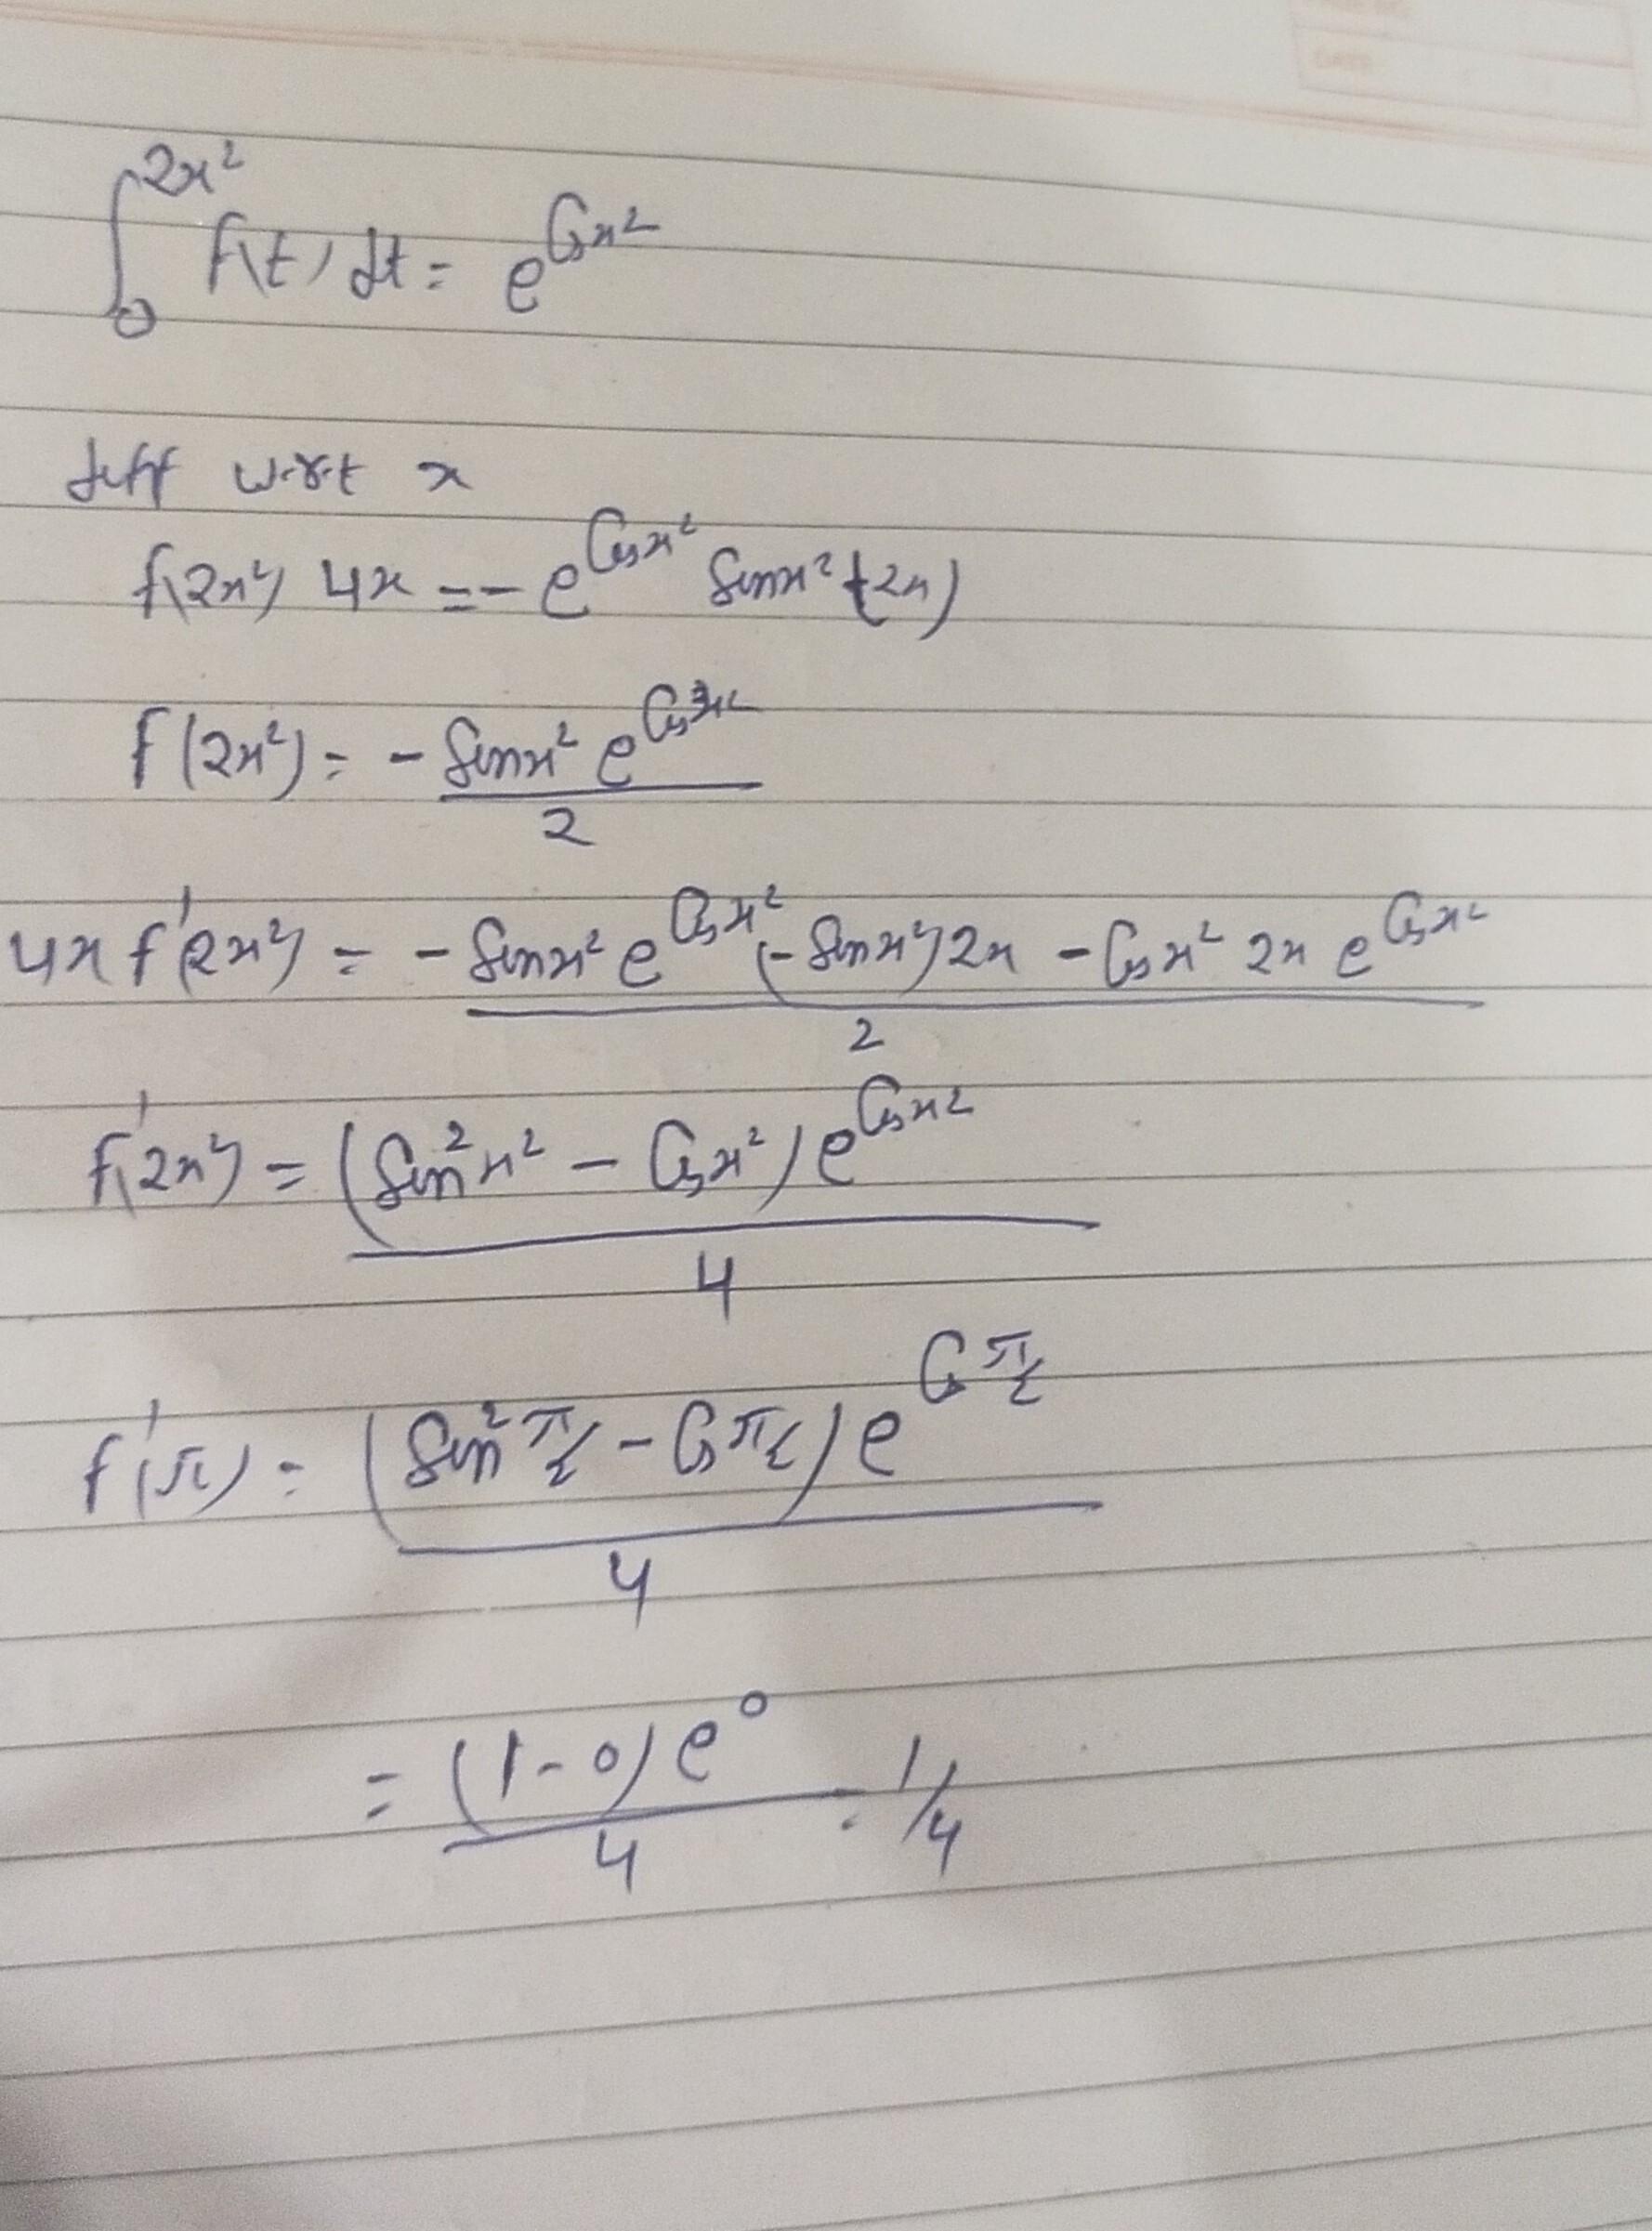 ∫₀^{2x²} f(t) dt = e^{Cos x²}
diff w.r.t x
f(2x²) 4x = - e^{Cos x²} Sin x² (2x)
f(2x²) = - Sin x² e^{Cos x²} / 2
4x f'(2x²) = - Sin x² e^{Cos x²} (- Sin x²) 2x - Cos x² 2x e^{Cos x²} / 2
f'(2x²) = (Sin² x² - Cos x²) e^{Cos x²} / 4
f'(π) = (Sin² π/2 - Cos π/2) e^{Cos π/2} / 4
= (1-0) e⁰ / 4 = 1/4